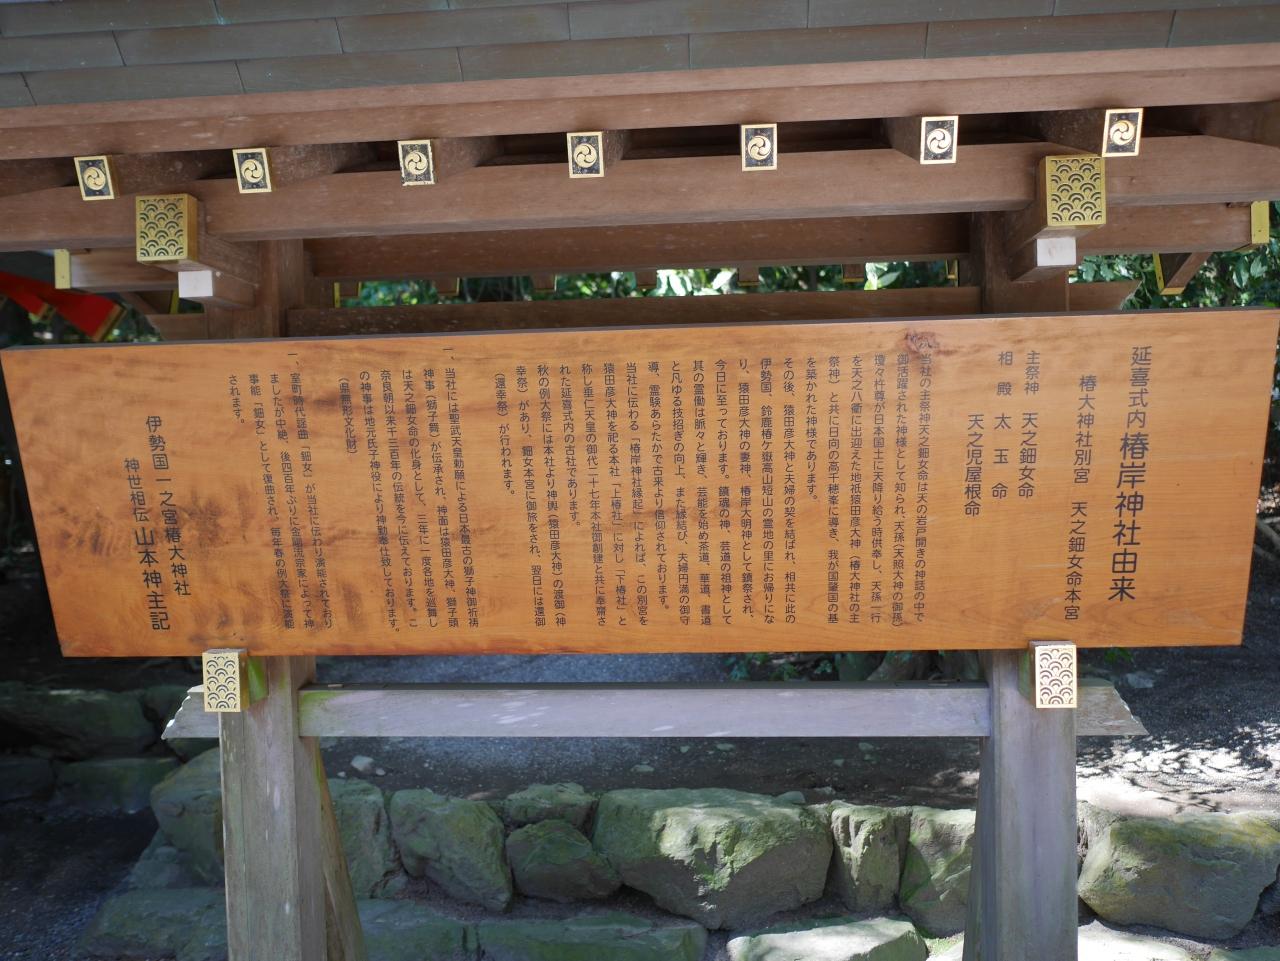 延喜式内 椿岸神社由来
椿大神社別宮 天之鈿女命本宮
主祭神 天之鈿女命
相殿 太玉命
天之児屋根命
当社の主祭神天之鈿女命は天の岩戸開きの神話の中で
御活躍された神様として知られ、天孫(天照大神の御孫)
瓊々杵尊が日本国土に天降り給う時供奉し、天孫一行
を天之八衢に出迎えた地祇猿田彦大神(椿大神社の主
祭神)と共に日向の高千穂峯に導き、我が国肇国の基
を築かれた神様であります。
その後、猿田彦大神と夫婦の契を結ばれ、相共に此の
伊勢国、鈴鹿椿ケ嶽高山短山の霊地の里にお帰りにな
り、猿田彦大神の妻神、椿岸大明神として鎮祭され、
今日に至っております。鎮魂の神、芸道の祖神として
其の霊働は脈々と輝き、芸能を始め茶道、華道、書道
と凡ゆる技招ぎの向上、また縁結び、夫婦円満の御守
導、霊験あらたかで古来より信仰されております。
当社に伝わる「椿岸神社縁起」によれば、この別宮を
猿田彦大神を祀る本社「上椿社」に対し「下椿社」と
称し垂仁天皇の御代二十七年本社御創建と共に奉齋さ
れた延喜式内の古社であります。
秋の例大祭には本社より神輿(猿田彦大神)の渡御(神
幸祭)があり、鈿女本宮に御旅をされ、翌日には還御
(還幸祭)が行われます。
一、当社には聖武天皇勅願による日本最古の獅子神御祈祷
神事(獅子舞)が伝承され、神面は猿田彦大神、獅子頭
は天之鈿女命の化身として、三年に一度各地を巡舞し
奈良朝以来千三百年の伝統を今に伝えております。こ
の神事は地元氏子神役により神勤奉仕致しております。
(県無形文化財)
一、室町時代謡曲「鈿女」が当社に伝わり演能されており
ましたが中絶、後四百年ぶりに金剛流宗家によって神
事能「鈿女」として復曲され、毎年春の例大祭に演能
されます。
伊勢国一之宮椿大神社
神世相伝山本神主記